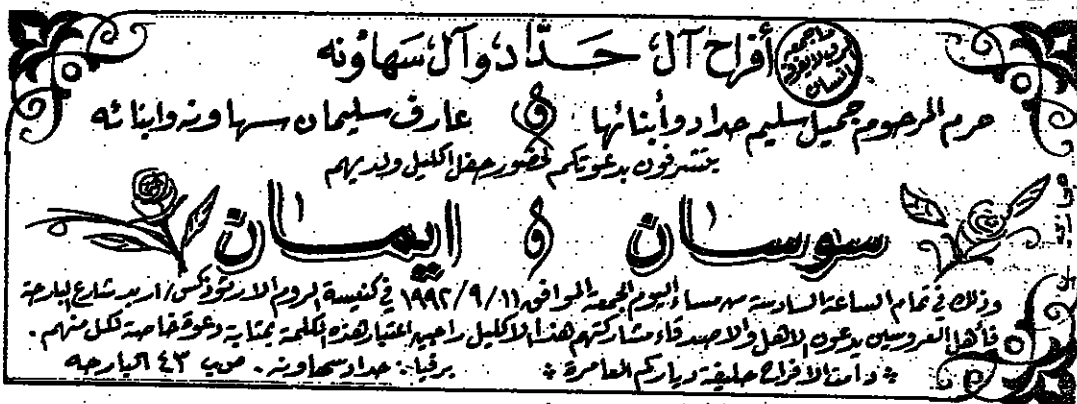 أفراح آل، حــدّاد، وآل، سهاونه
ما جمعه الرب لا يفرقه انسان
حرم المرحوم جميل سليم حداد وأبنائها و عارف سليمان سهاونه وابنائه
يتشرفون بدعوتكم لحضور حفل اكليل ولديهم
سوسان و ايمان
وذلك في تمام الساعة السادسة من مساء اليوم الجمعه الموافق ١٩٩٢/٩/١١ في كنيسة الروم الارثوذكس/ اربد شارع البارحة
فأهل العروسين يدعون الاهل والاصدقاء مشاركتهم هذا الاكليل راجين اعتبار هذه الكلمة بمثابة دعوة خاصة لكل منهم .
دامت الافراح حليفة دياركم العامرة برقيا: حداد سهاونه . ص.ب ٤٣ البارحه